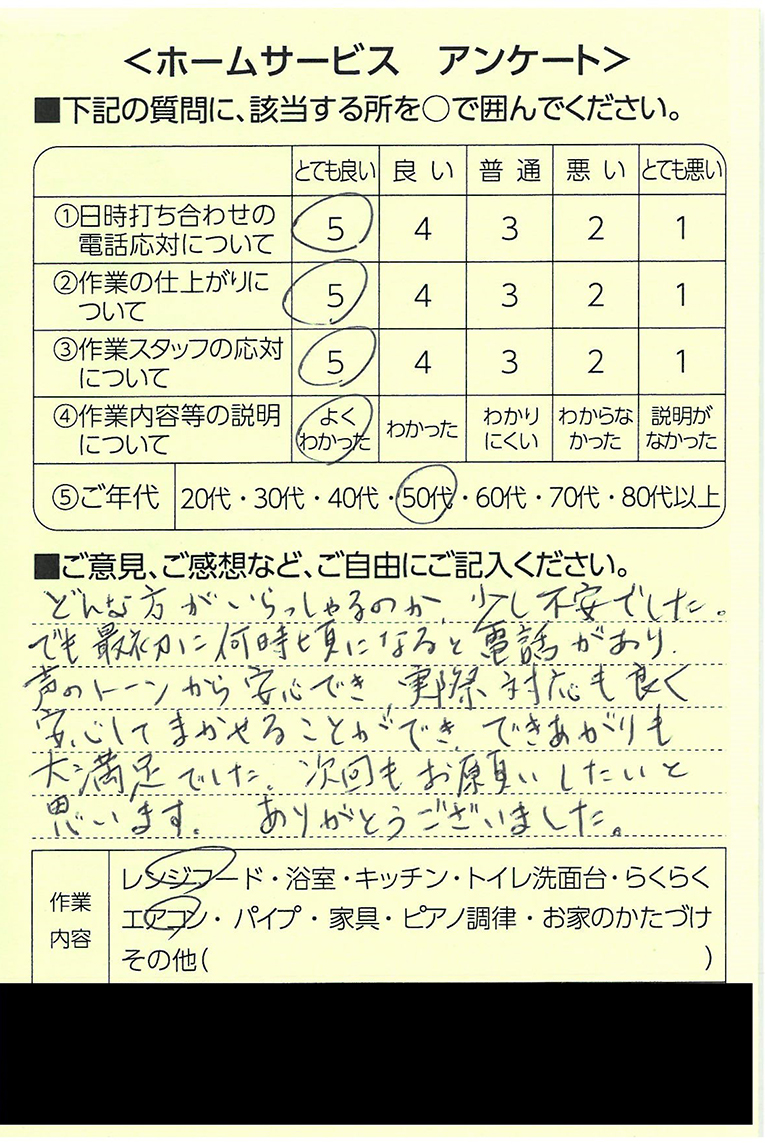 ＜ホームサービス　アンケート＞
■下記の質問に、該当する所を○で囲んでください。
とても良い 良い 普通 悪い とても悪い
①日時打ち合わせの電話応対について 5 4 3 2 1
②作業の仕上がりについて 5 4 3 2 1
③作業スタッフの応対について 5 4 3 2 1
④作業内容等の説明について よくわかった わかった わかりにくい わからなかった 説明がなかった
⑤ご年代 20代・30代・40代・50代・60代・70代・80代以上
■ご意見、ご感想など、ご自由にご記入ください。
どんな方がいらっしゃるのか、少し不安でした。
でも最初に何時頃になると電話があり、
声のトーンから安心でき、実際対応も良く
安心してまかせることができ、できあがりも
大満足でした。次回もお願いしたいと
思います。ありがとうございました。
作業内容
レンジフード・浴室・キッチン・トイレ洗面台・らくらく
エアコン・パイプ・家具・ピアノ調律・お家のかたづけ
その他(　)